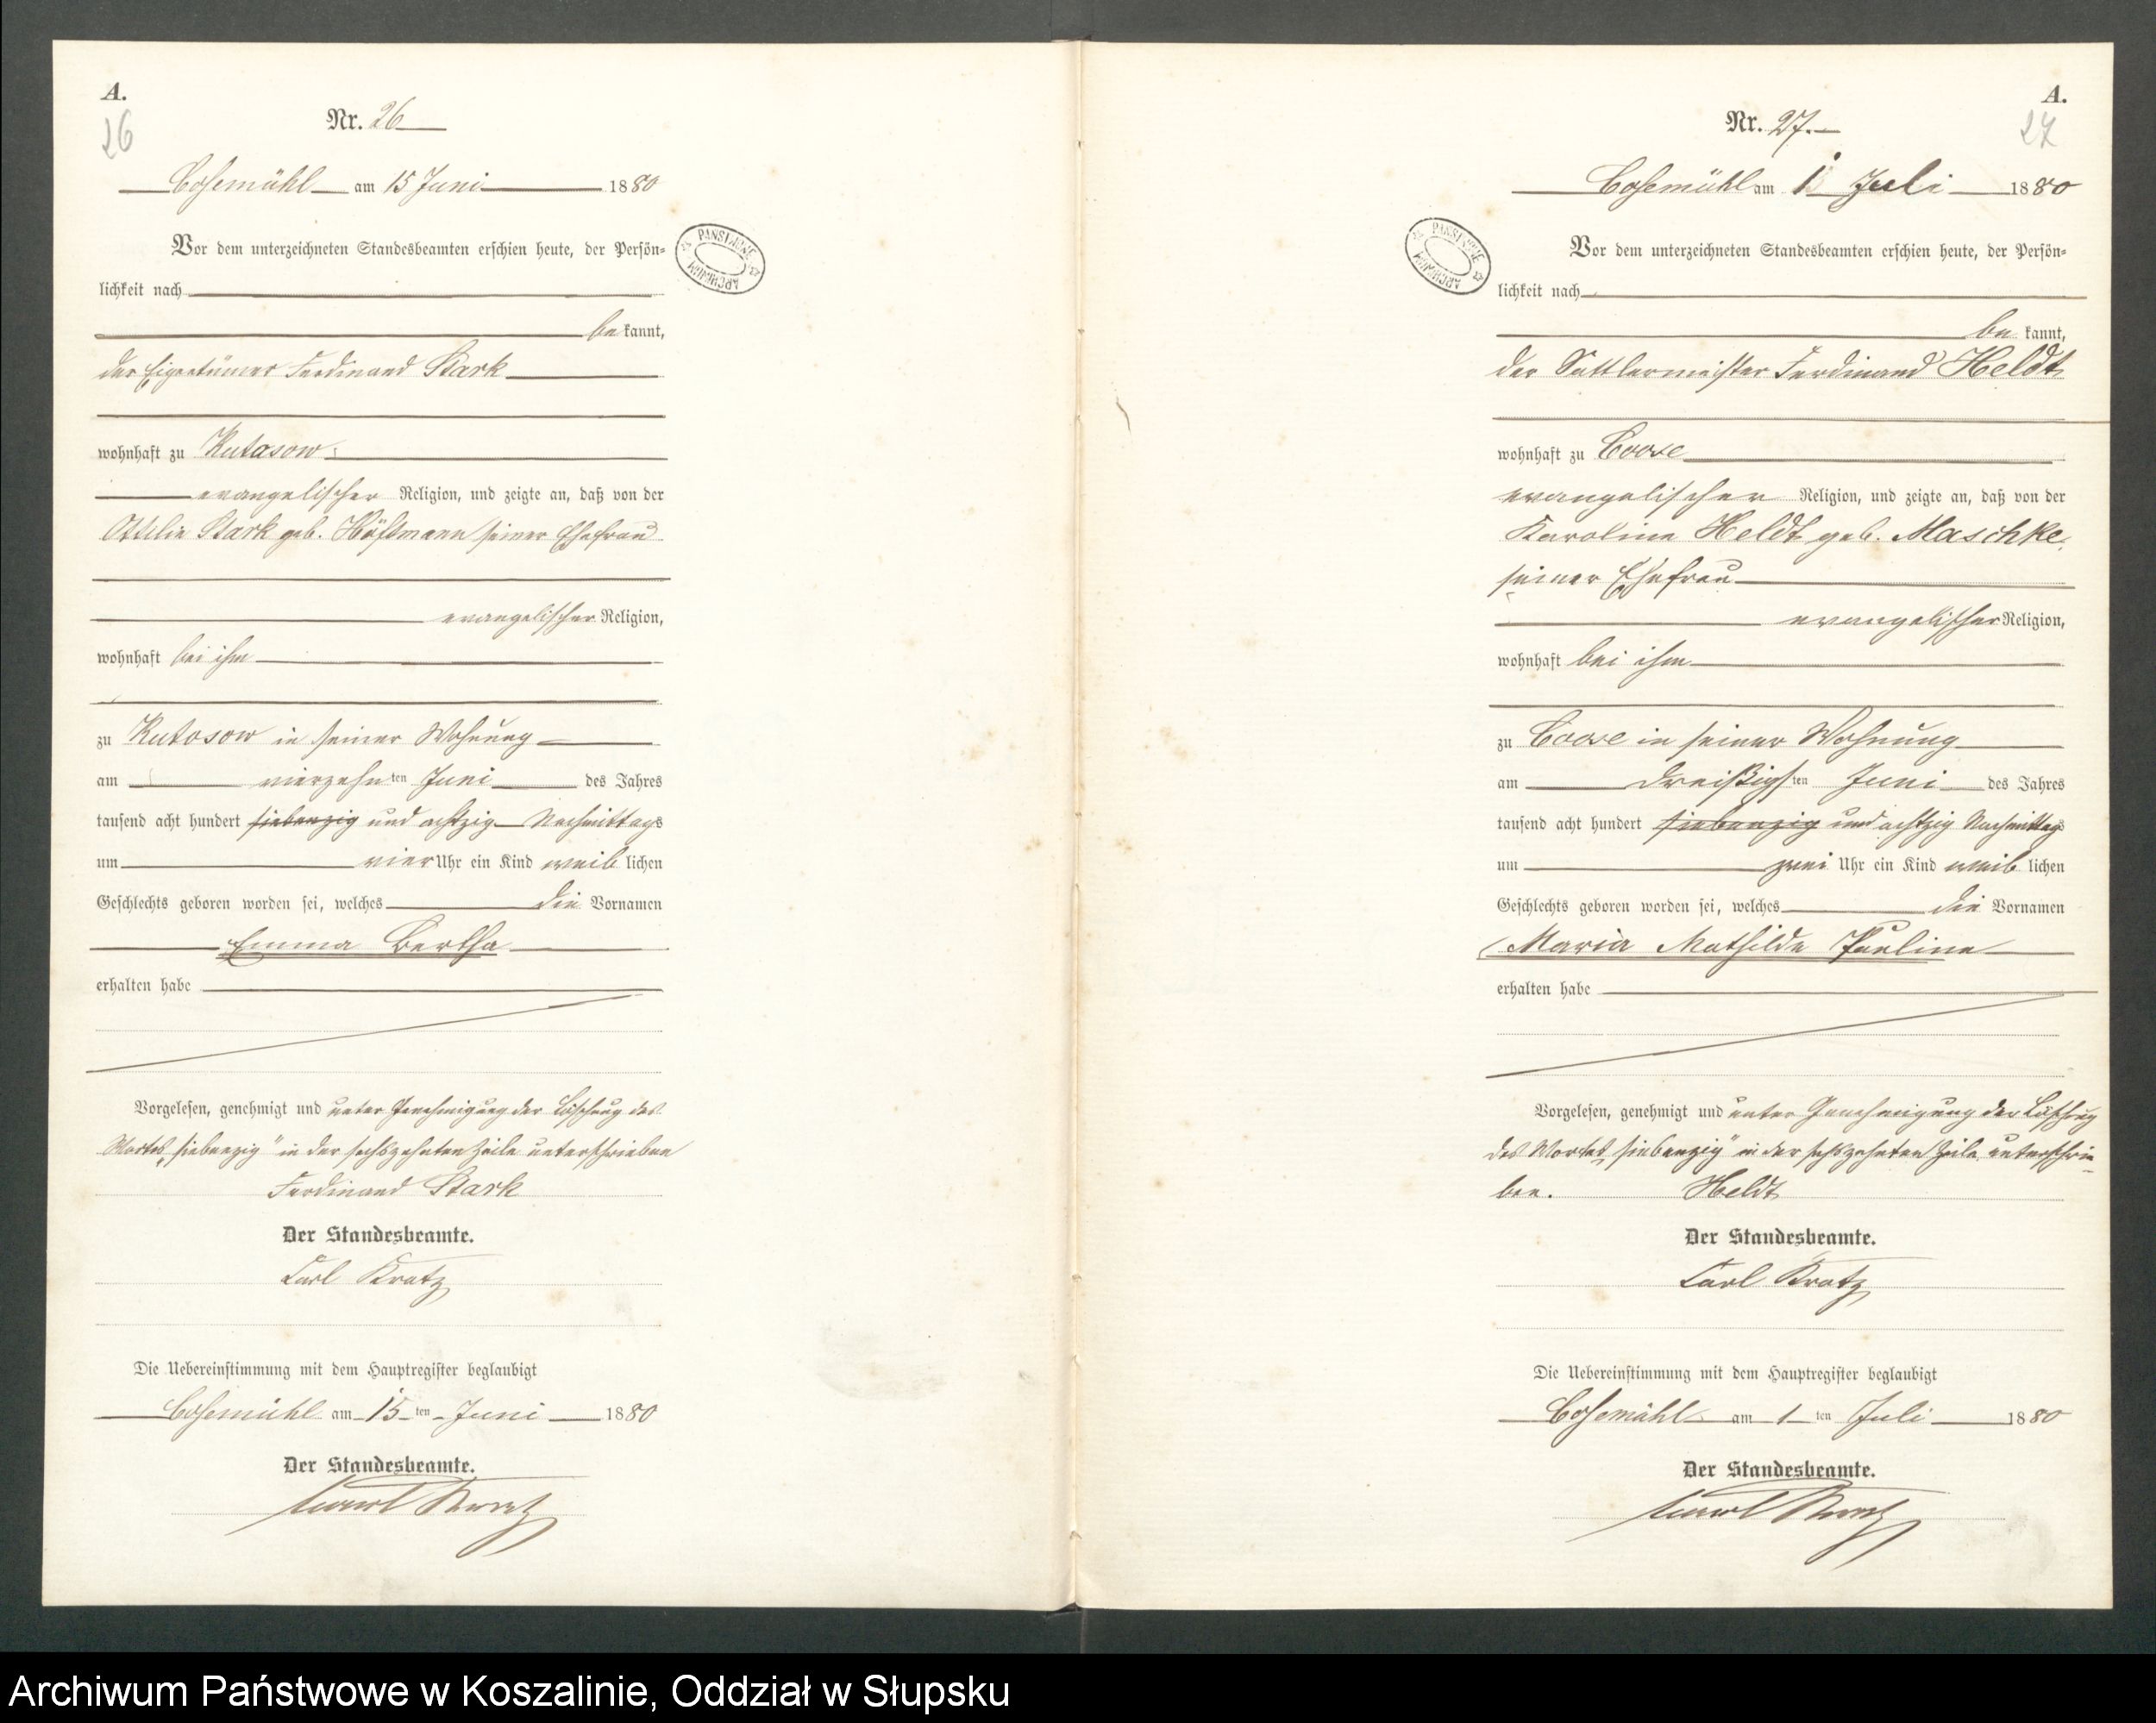 A.
26
Nr. 26
Cosemühl am 15 Juni 1880
Vor dem unterzeichneten Standesbeamten erschien heute, der Persön-
lichkeit nach
be kannt,
der Eigentümer Ferdinand Stark
wohnhaft zu Kutasow
evangelischer Religion, und zeigte an, daß von der
Ottilie Stark geb. seiner Ehefrau
evangelischer Religion,
wohnhaft bei ihm
zu Kutosow in seiner Wohnung
am vierzehn ten Juni des Jahres
tausend acht hundert siebenzig und achtzig Nachmittags
um vier Uhr ein Kind weib lichen
Geschlechts geboren worden sei, welches die Vornamen
Emma Bertha
erhalten habe
Vorgelesen, genehmigt und unter Genehmigung der Löschung des
Wortes „siebenzig" in der sechszehnten Zeile unterschrieben
Ferdinand Stark
Der Standesbeamte.
Carl Kratz
Die Uebereinstimmung mit dem Hauptregister beglaubigt
Cosemühl am 15 ten Juni 1880
Der Standesbeamte.
Carl Kratz
PAŃSTWOWE ARCHIWUM
A.
27
Nr. 27.
Cosemühl am 1 Juli 1880
Vor dem unterzeichneten Standesbeamten erschien heute, der Persön-
lichkeit nach
be kannt,
der Sattlermeister Ferdinand Heldt
wohnhaft zu Coose
evangelischer Religion, und zeigte an, daß von der
Karoline Heldt geb. Maschke,
seiner Ehefrau
evangelischer Religion,
wohnhaft bei ihm
zu Coose in seiner Wohnung
am dreißigs ten Juni des Jahres
tausend acht hundert siebenzig und achtzig Nachmittags
um zwei Uhr ein Kind weib lichen
Geschlechts geboren worden sei, welches die Vornamen
Maria Mathilde Pauline
erhalten habe
Vorgelesen, genehmigt und unter Genehmigung der Löschung
des Wortes „siebenzig" in der sechszehnten Zeile unterschrie-
ben. Heldt
Der Standesbeamte.
Carl Kratz
Die Uebereinstimmung mit dem Hauptregister beglaubigt
Cosemühl am 1 ten Juli 1880
Der Standesbeamte.
Carl Kratz
PAŃSTWOWE ARCHIWUM
Archiwum Państwowe w Koszalinie, Oddział w Słupsku